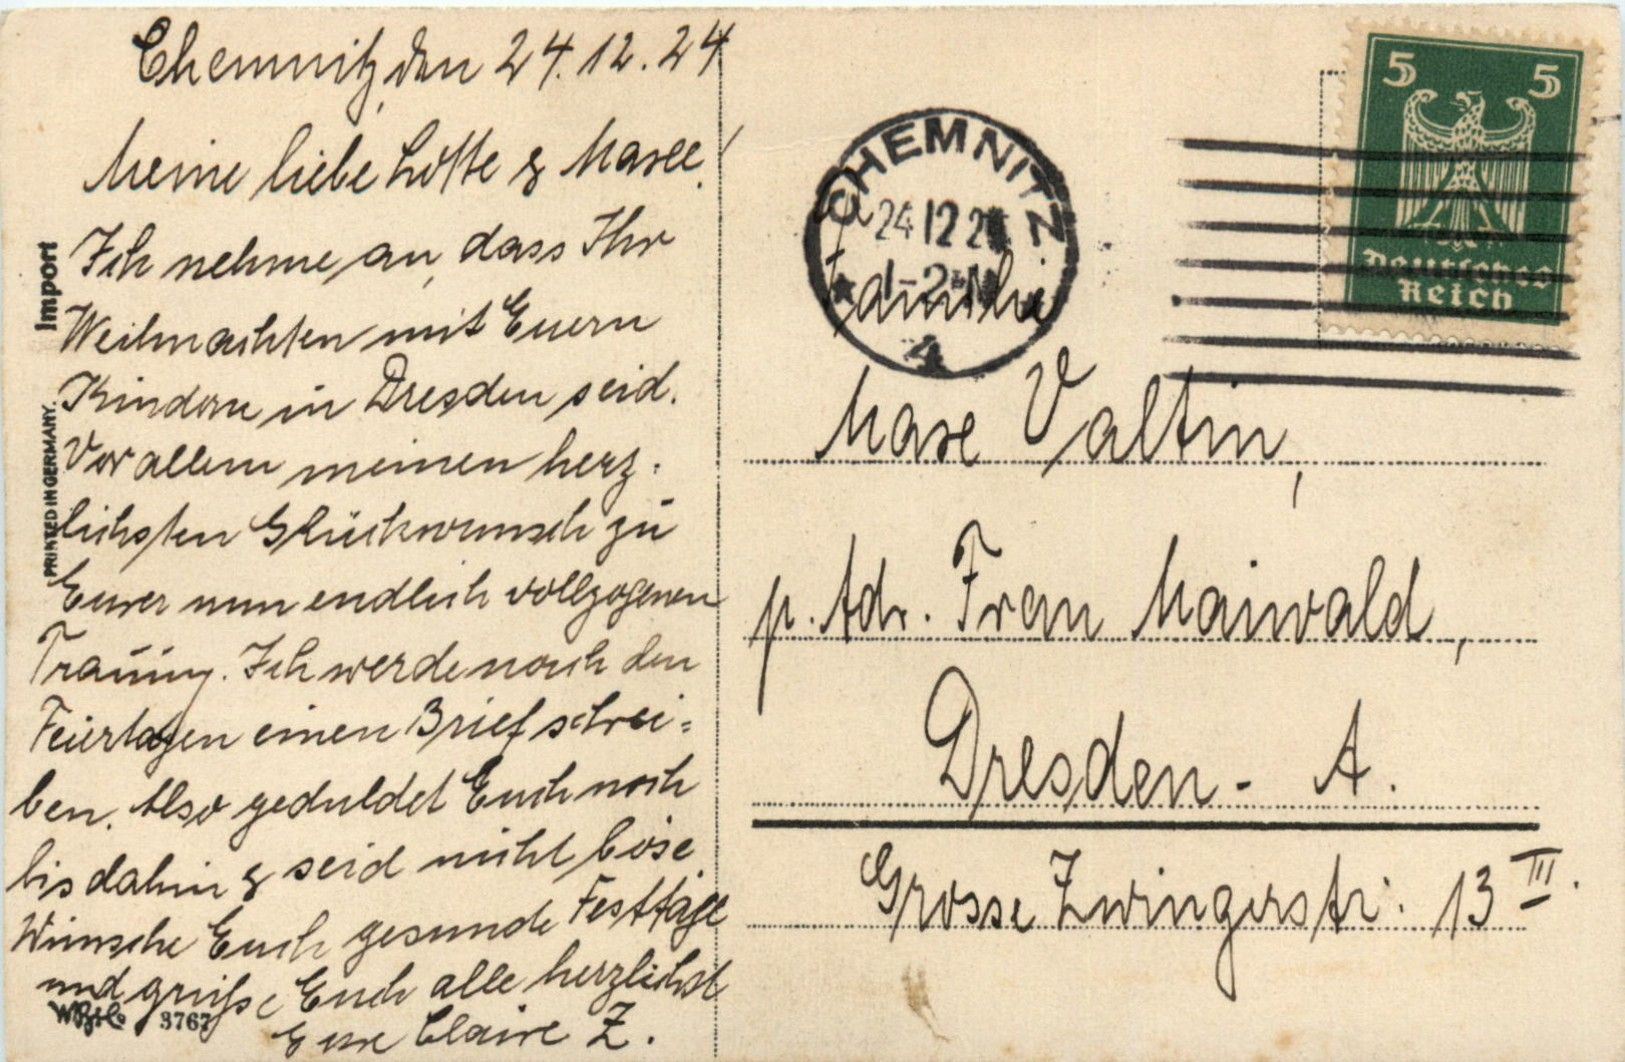 Chemnitz, den 24.12.24
Meine liebe Lotte & Maxe!
Ich nehme an, dass Ihr
Weihnachten mit Euern
Kindern in Dresden seid.
Vor allem meinen herz-
lichsten Glückwunsch zu
Eurer nun endlich vollzogenen
Trauung. Ich werde nach den
Feiertagen einen Brief schrei=
ben. Also geduldet Euch noch
bis dahin & seid nicht böse
Wünsche Euch gesunde Festtage
und grüße Euch alle herzlichst
Eure Claire Z.
Import
PRINTED IN GERMANY.
3767
CHEMNITZ
24 12 24
1-2 N
4
5 5
Deutsches
Reich
Familie
Maxe Valtin,
p. Adr. Frau Maiwald,
Dresden - A.
Grosse Zwingerstr. 13 III.